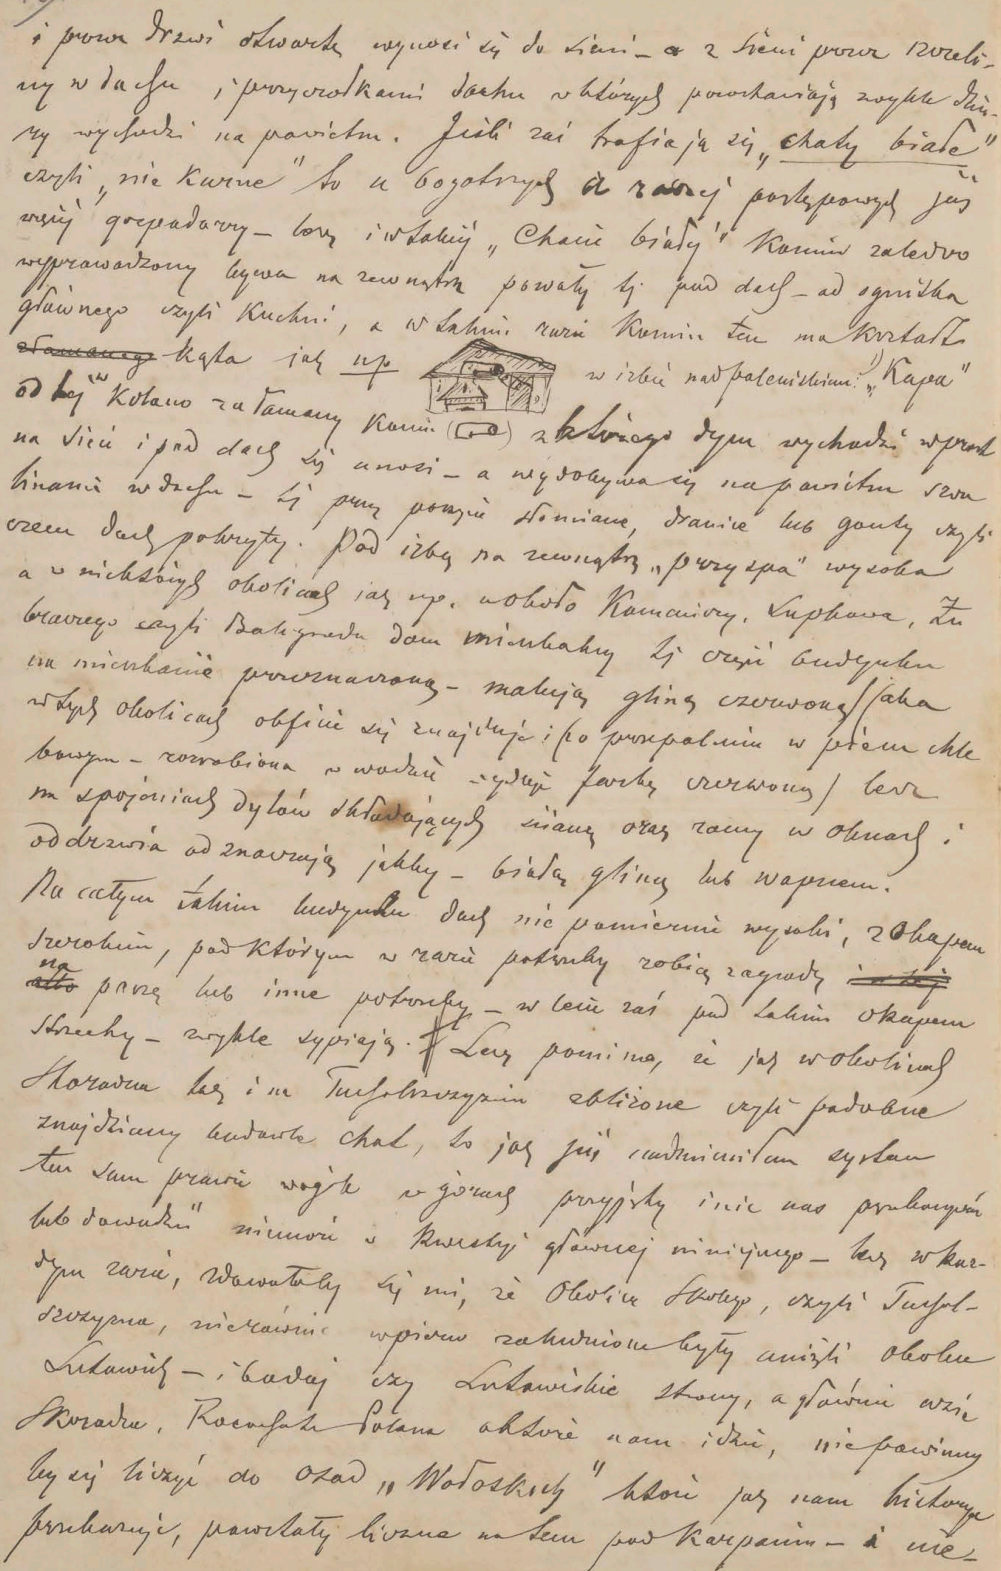 i przez drzwi otwarte wynosi się do sieni – a z sieni przez szczeli-
ny w dachu i przyczołkami dachu w których pozostawiają zwykle dziu-
ry wychodzi na powietrze. Jeśli zaś trafiają się „chaty białe"
czyli „nie kurne" to u bogatszych a raczej postępowych już
więcej gospodarzy – lecz i w takiej „Chacie białej" Komin zaledwo
wyprowadzony bywa na zewnątrz powały tj pod dach – od ogniska
głównego czyli Kuchni, a w takim razie Komin ten ma kształt
złamanego kąta jak np w izbie nad paleniskiem: „Kapa"
od tej w Kolano załamany Komin z którego dym wychodzi wprost
na sień i pod dach się unosi – a wydobywa się na powietrze szcze
linami w dachu – tj przez poszycie słomiane, dranice lub gonty czyli
czem dach pokryty. Pod izbą na zewnątrz „przyspa" wysoka
a w niektórych okolicach jak np. w około Komańczy, Łupkowa, Żu
braczego czyli Baligrodu dom mieszkalny tj część budynku
na mieszkanie przeznaczoną – malują gliną czerwoną (jaka
w tych okolicach obficie się znajduje i po przepaleniu w piecu chle
bowym – rozrobiona w wodzie wydaje farbę czerwoną) lecz
na spojeniach dylów składających ścianę oraz ramy w oknach i
oddrzwia odznaczają jakby – białą gliną lub wapnem.
Na całym takim budynku dach niepomiernie wysoki, z Okapem
szerokim, pod którym w razie potrzeby robią zagrody
na paszę lub inne potrzeby – w lecie zaś pod takim okapem
strzechy – zwykle sypiają. Lecz pomimo, że jak w okolicach
Skorodna tak i na Tucholszczyznie zbliżone czyli podobne
znajdziemy budowle chat, to jak już nadmieniłem system
ten sam prawie wogóle w górach przyjęty i nic nas przekonywu
lub dowodzić niemoże w kwestyi głównej niniejszego – lecz w każ-
dym razie, zdawałoby się mi, że Okolica Skolego, czyli Tuchol-
szczyzna, nierównie wpierw zaludnione były aniżeli okolice
Lutowisk – i bodaj czy Lutowiskie strony, a głównie wsie
Skorodne, Rosochate Polana o które nam idzie, niepowinny
by się liczyć do osad „Wołoskich" które jak nam historya
przekazuje, powstały liczne na tem pod Karpaciu – i nie-